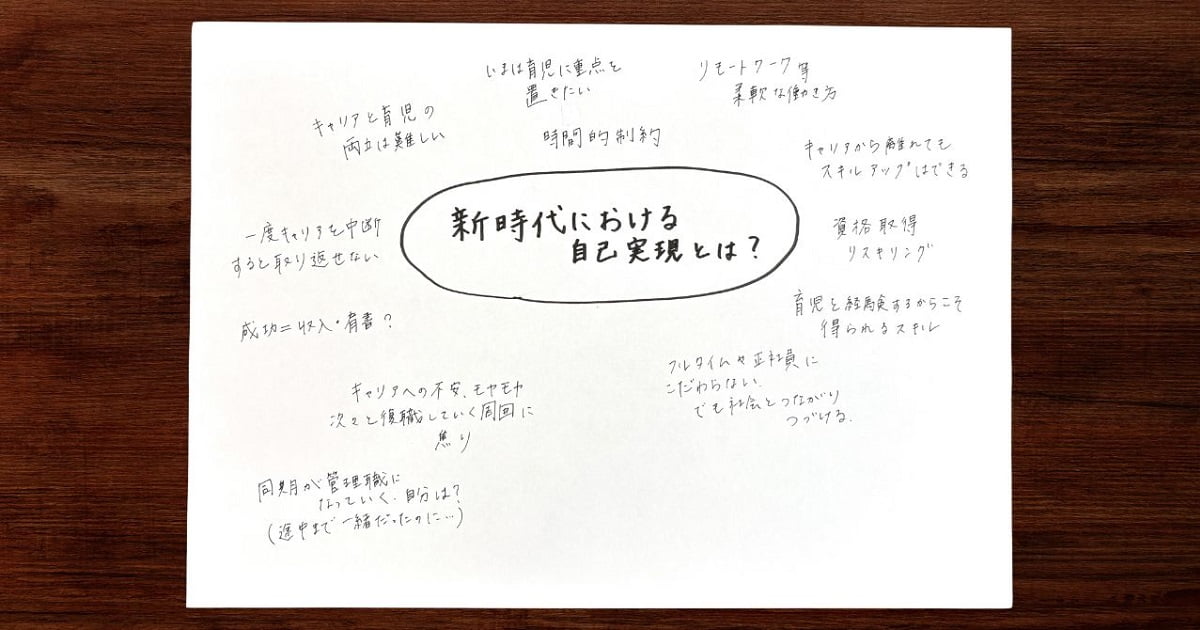 いまは育児に重点を
置きたい
リモートワーク等
柔軟な働き方
キャリアと育児の
両立は難しい
時間的制約
キャリアから離れても
スキルアップはできる
新時代における
自己実現とは?
一度キャリアを中断
すると取り返せない
資格取得
リスキリング
育児を経験するからこそ
得られるスキル
成功=収入・肩書?
フルタイムや正社員に
こだわらない.
でも社会とつながり
つづける.
キャリアへの不安、モヤモヤ
次々と復職していく周囲に
焦り
同期が管理職に
なっていく.自分は?
(途中まで一緒だったのに…)